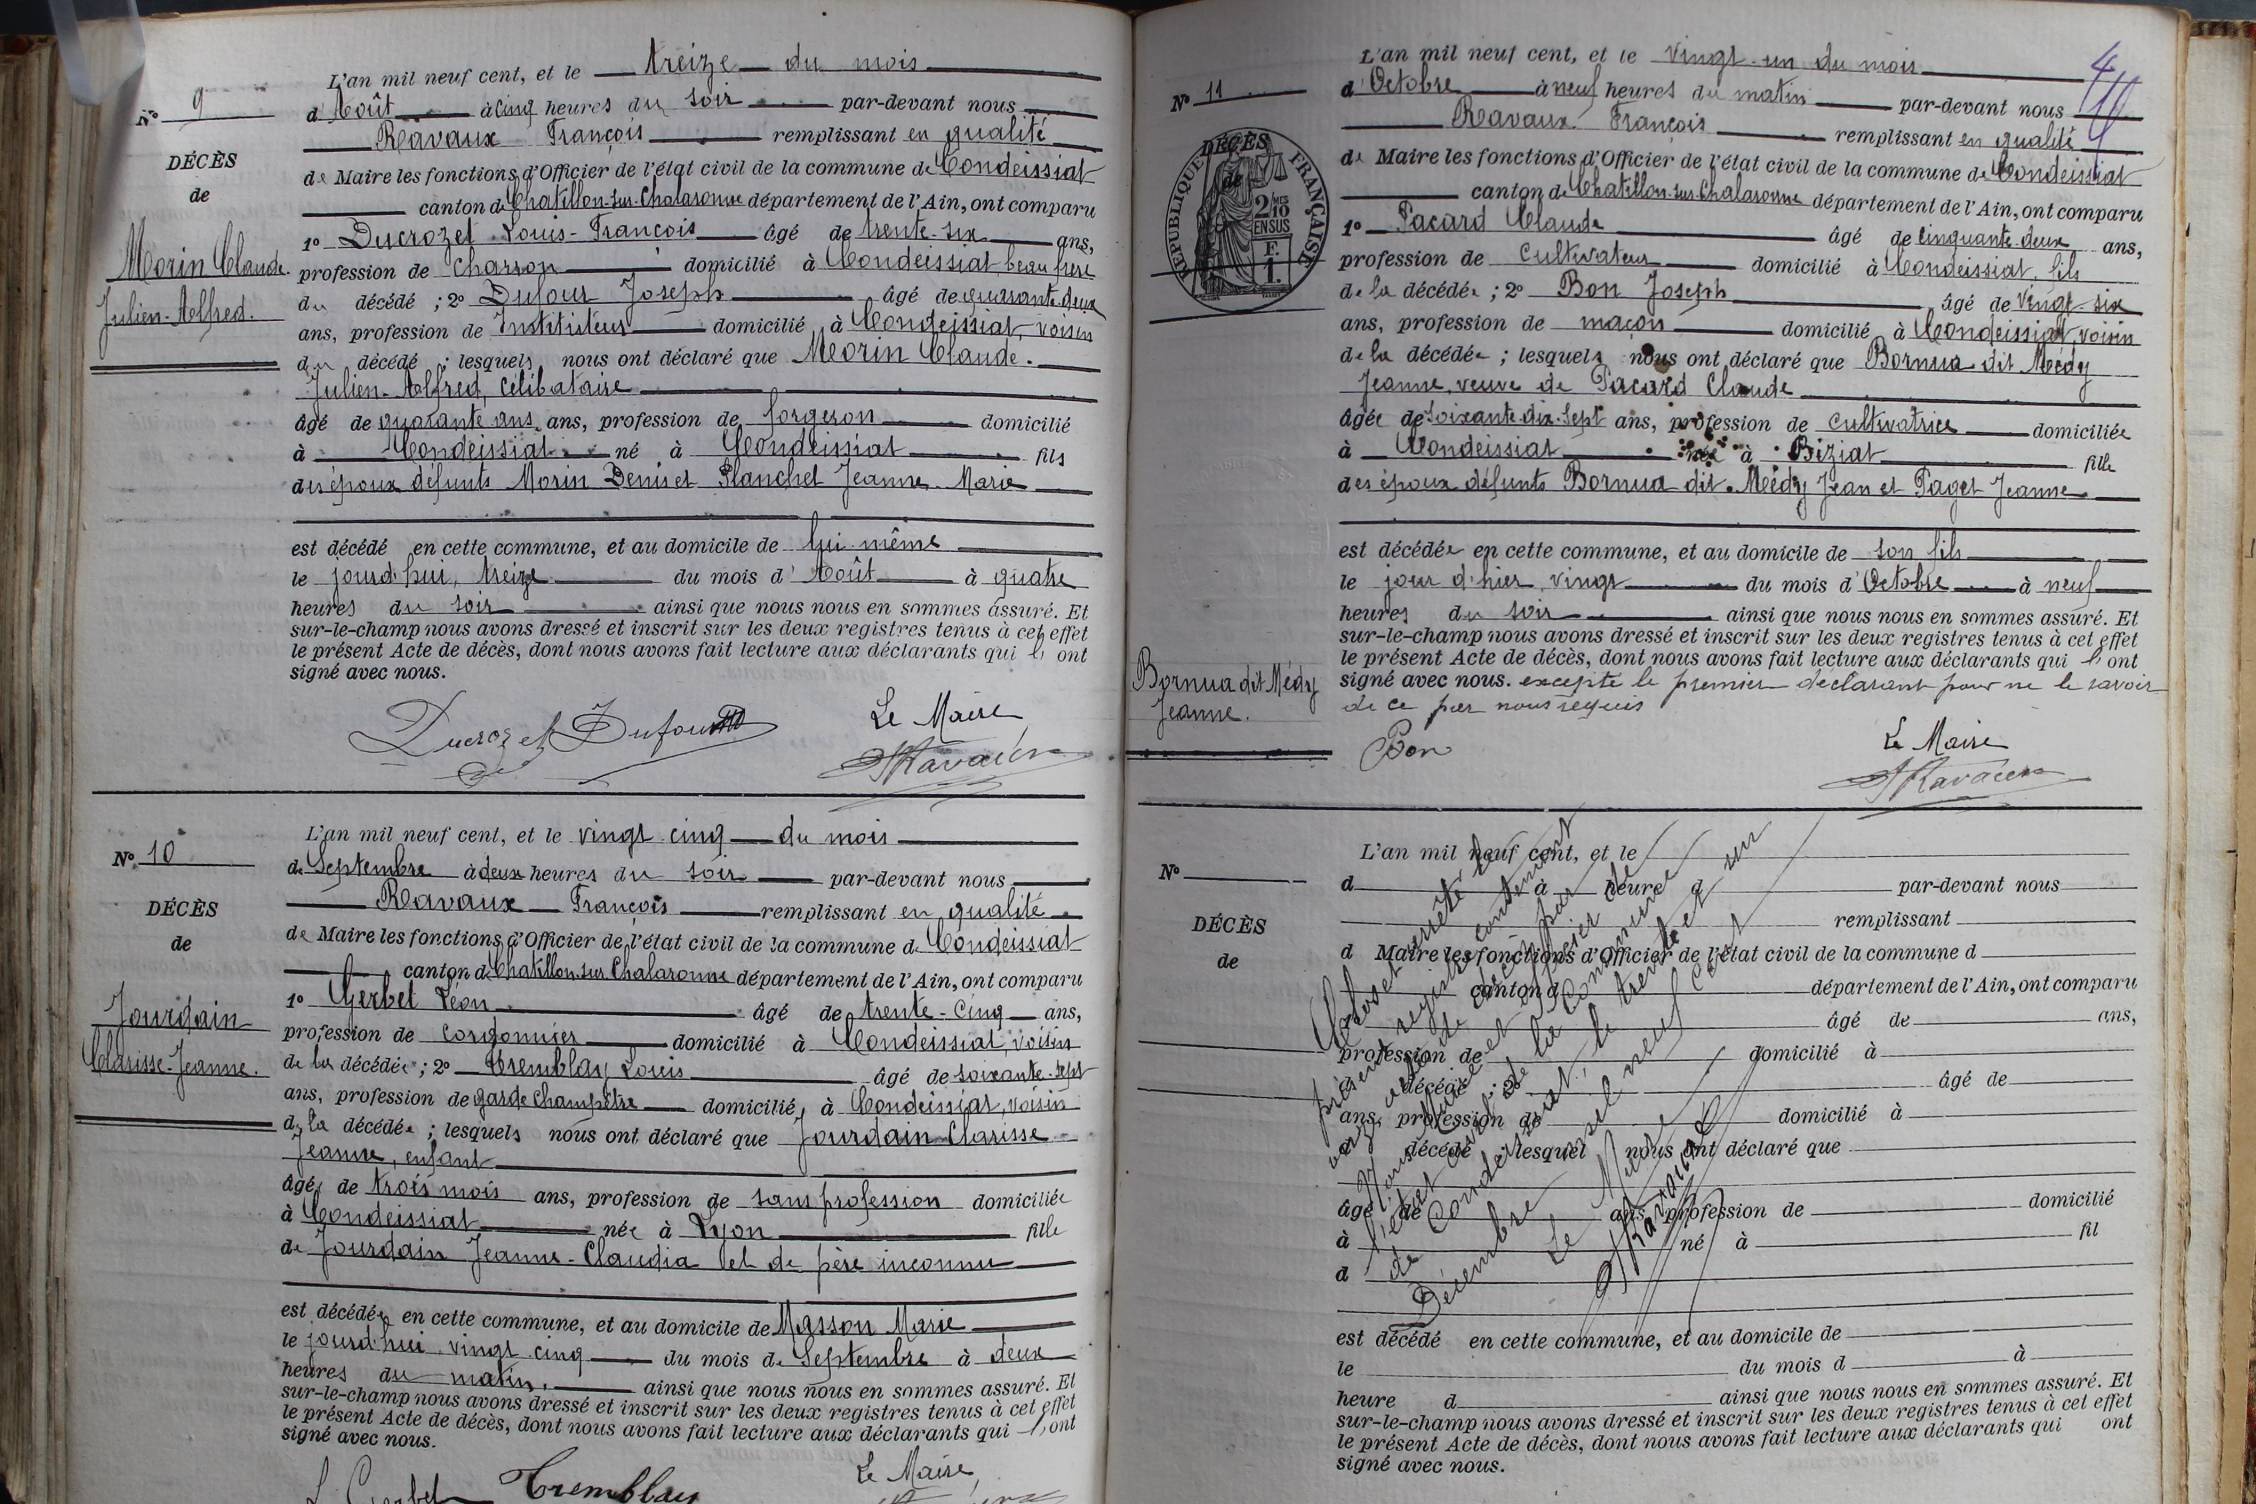 L'an mil neuf cent, et le treize du mois
Nº 9
d'Août à cinq heures du soir par-devant nous
Ravaux François remplissant en qualité
DÉCÈS
de Maire les fonctions d'Officier de l'état civil de la commune de Condeissiat
de
canton de Chatillon-sur-Chalaronne département de l'Ain, ont comparu
1º Ducrozet Louis-François âgé de trente-six ans,
Morin Claude.
profession de charron domicilié à Condeissiat, beau frère
Julien-Alfred.
du décédé ; 2º Dufour Joseph âgé de quarante-deux
ans, profession de Instituteur domicilié à Condeissiat, voisin
du décédé ; lesquels nous ont déclaré que Morin Claude-
Julien-Alfred, célibataire
âgé de quarante ans ans, profession de forgeron domicilié
à Condeissiat né à Condeissiat fils
des époux défunts Morin Denis et Planchet Jeanne-Marie
est décédé en cette commune, et au domicile de lui-même
le jourd'hui, treize du mois d'Août à quatre
heures du soir ainsi que nous nous en sommes assuré. Et
sur-le-champ nous avons dressé et inscrit sur les deux registres tenus à cet effet
le présent Acte de décès, dont nous avons fait lecture aux déclarants qui l'ont
signé avec nous.
Ducrozet Dufour Le Maire
FRavaux
L'an mil neuf cent, et le vingt-cinq du mois
Nº 10
de Septembre à deux heures du soir par-devant nous
Ravaux François remplissant en qualité
DÉCÈS
de Maire les fonctions d'Officier de l'état civil de la commune de Condeissiat
de
canton de Chatillon-sur-Chalaronne département de l'Ain, ont comparu
1º Gerbet Léon âgé de trente-cinq ans,
Jourdain
profession de cordonnier domicilié à Condeissiat, voisin
Clarisse-Jeanne.
de la décédée ; 2º Tremblay Louis âgé de soixante-sept
ans, profession de garde champêtre domicilié à Condeissiat, voisin
de la décédée ; lesquels nous ont déclaré que Jourdain Clarisse-
Jeanne, enfant
âgée de trois mois ans, profession de sans profession domiciliée
à Condeissiat née à Lyon fille
de Jourdain Jeanne-Claudia et de père inconnu
est décédée en cette commune, et au domicile de Masson Marie
le jourd'hui vingt-cinq du mois de Septembre à deux
heures du matin, ainsi que nous nous en sommes assuré. Et
sur-le-champ nous avons dressé et inscrit sur les deux registres tenus à cet effet
le présent Acte de décès, dont nous avons fait lecture aux déclarants qui l'ont
signé avec nous.
L Gerbet Tremblay Le Maire
L'an mil neuf cent, et le vingt-un du mois
Nº 11
d'Octobre à neuf heures du matin par-devant nous
Ravaux François remplissant en qualité
DÉCÈS
de
RÉPUBLIQUE FRANÇAISE
2/10 MES
EN SUS
F.
1.
de Maire les fonctions d'Officier de l'état civil de la commune de Condeissiat
canton de Chatillon-sur-Chalaronne département de l'Ain, ont comparu
1º Pacard Claude âgé de cinquante-deux ans,
profession de cultivateur domicilié à Condeissiat, fils
de la décédée ; 2º Bon Joseph âgé de vingt-six
ans, profession de maçon domicilié à Condeissiat, voisin
de la décédée ; lesquels nous ont déclaré que Bornua dit Médy
Jeanne, veuve de Pacard Claude
âgée de soixante-dix-sept ans, profession de cultivatrice domiciliée
à Condeissiat née à Biziat fille
des époux défunts Bornua dit Médy Jean et Paget Jeanne
est décédée en cette commune, et au domicile de son fils
le jour d'hier, vingt du mois d'Octobre à neuf
heures du soir ainsi que nous nous en sommes assuré. Et
sur-le-champ nous avons dressé et inscrit sur les deux registres tenus à cet effet
le présent Acte de décès, dont nous avons fait lecture aux déclarants qui l'ont
Bornua dit Médy
Jeanne.
signé avec nous. excepté le premier déclarant pour ne le savoir
de ce par nous requis
Bon Le Maire
FRavaux
L'an mil neuf cent, et le
Nº
d à heure d par-devant nous
remplissant
DÉCÈS
d Maire les fonctions d'Officier de l'état civil de la commune d
de
canton d département de l'Ain, ont comparu
âgé de ans,
profession de domicilié à
d décédé ; 2º âgé de
ans, profession de domicilié à
d décédé ; lesquel nous ont déclaré que
âgé de ans, profession de domicilié
à né à fil
d
est décédé en cette commune, et au domicile de
le du mois d à
heure d ainsi que nous nous en sommes assuré. Et
sur-le-champ nous avons dressé et inscrit sur les deux registres tenus à cet effet
le présent Acte de décès, dont nous avons fait lecture aux déclarants qui ont
signé avec nous.
Clos et arrêté le
présent registre contenant
onze actes de décès par
Nous Maire et officier de
l'état civil de la Commune
de Condeissiat, le trente et un
Décembre mil neuf cent
Le Maire
FRavaux